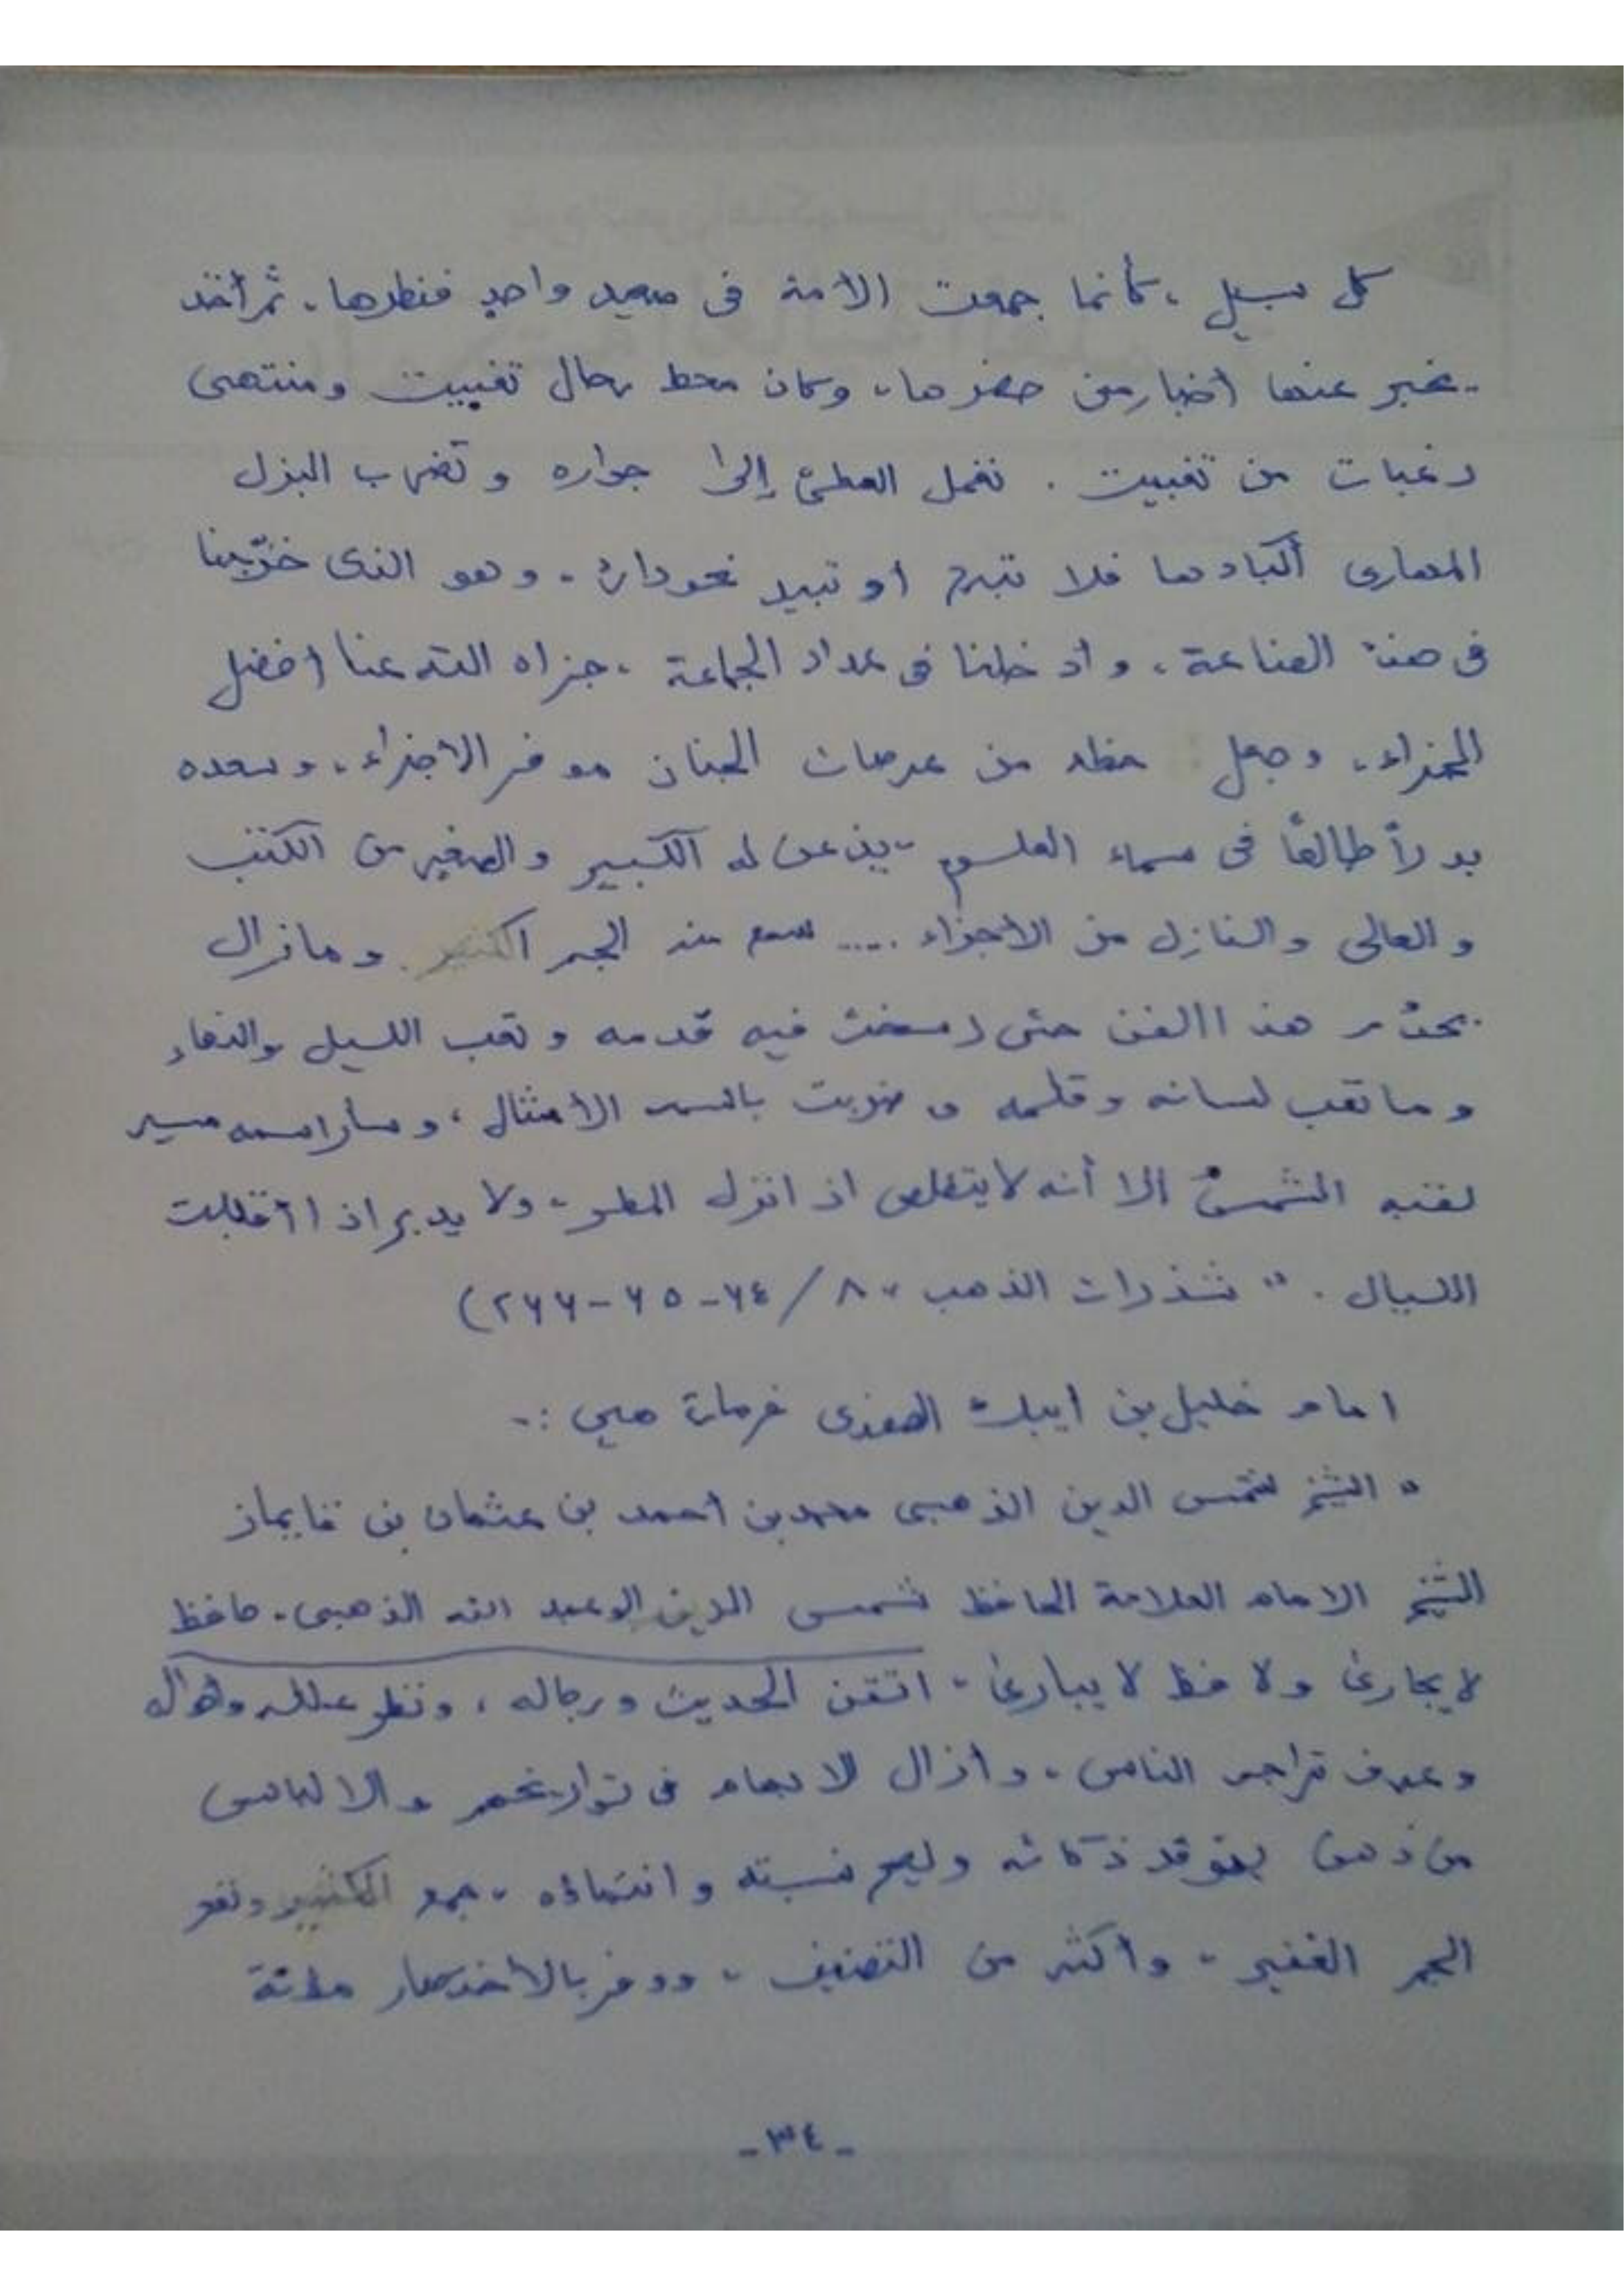 كل سبيل ، كأنما جمعت الأمة فى صعيد واحدٍ فنظرها ، ثم أخذ
يخبر عنها أخبار من حضرها ، وكان محط رحال تغيبت ومنتهى
رغبات من تغيبت . تعمل المطىّ إلى جواره و تضرب البزل
المهارى أكبادها فلا تبرح أو تبيد نحو داره . وهو الذى خرّجنا
فى هذه الصناعة ، وادخلنا فى عداد الجماعة ، جزاه الله عنا أفضل
الجزاء ، وجعل حظه من عرصات الجنان موفر الأجزاء ، وسعده
بدراً طالعًا فى سماء العلوم يذعن له الكبير والصغير من الكتب
والعالى والنازل من الأجزاء .... سمع منه الجمع الكثير . ومازال
يخدم هذا الفن حتى رسخت فيه قدمه وتعب الليل والنهار
وما تعب لسانه وقلمه وضربت باسمه الأمثال ، وسار اسمه مسير
لقبه الشمس إلا أنه لايتقلص اذا نزل المطر ، ولا يدبر اذا اقبلت
الليال . " شذرات الذهب ، ٨ / ٦٤-٦٥-٢٦٦)
امام خليل بن ايبك الصفدى فرماتے هيں :-
" الشيخ شمس الدين الذهبى محمد بن أحمد بن عثمان بن قايماز
الشيخ الامام العلامة الحافظ شمس الدين ابو عبد الله الذهبى . حافظ
لا يجارى ولا فظ لا يبارى ، اتقن الحديث ورجاله ، ونظر علله واحواله
وعرف تراجم الناس ، وأزال الابهام فى تواريخهم والالباس
من ذهن يتوقد ذكائه ويصح نسبته وانتماؤه ، جمع الكثير ونفع
الجم الغفير ، وأكثر من التصنيف ، ووفر بالاختصار مئونة
-٣٤-